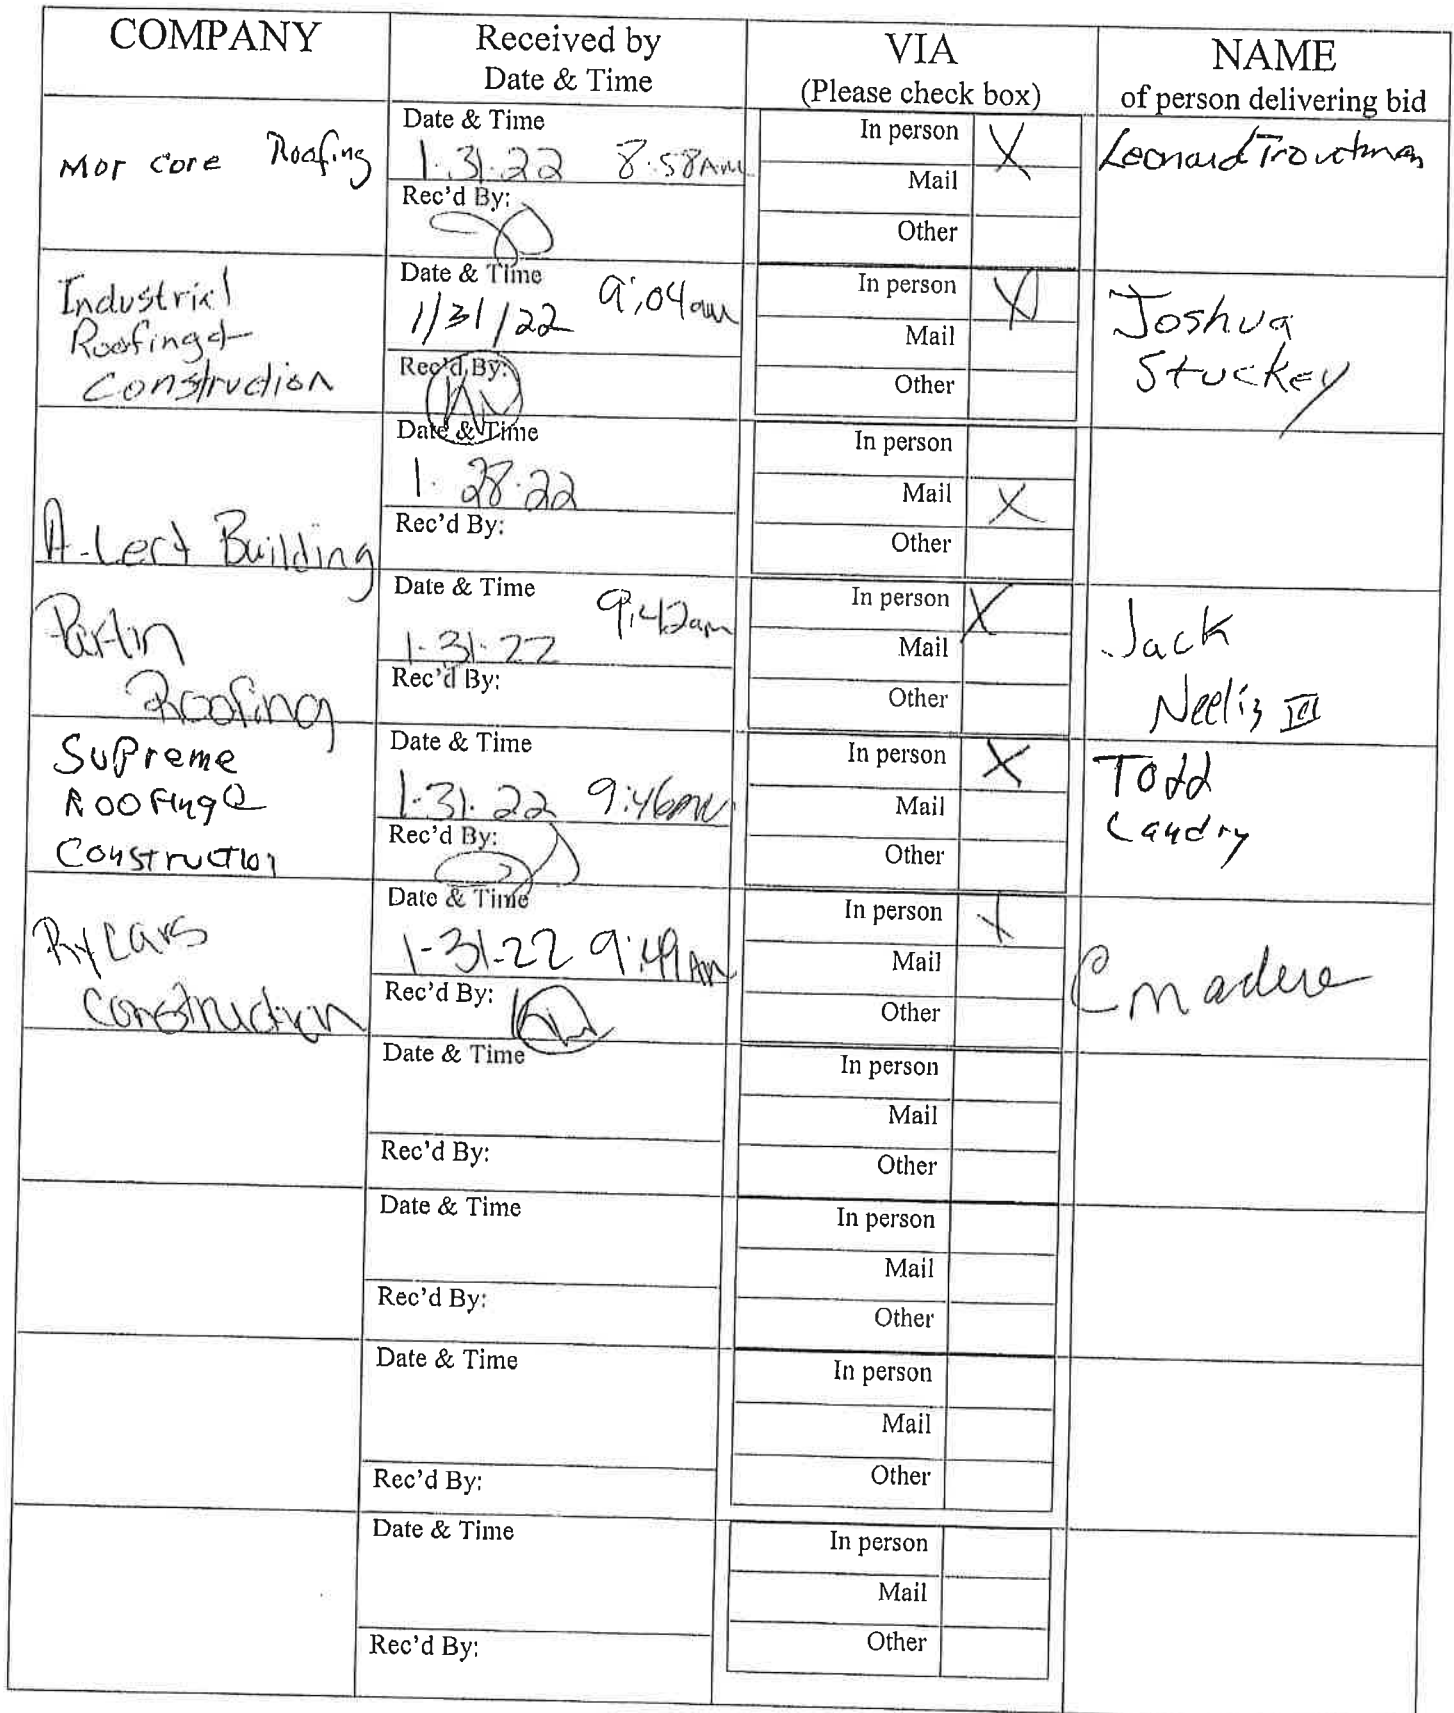 COMPANY
Received by
Date & Time
VIA
(Please check box)
NAME
of person delivering bid
Mor Core Roofing
Date & Time
1.31.22 8:58AM
Rec'd By:
In person X
Mail
Other
Leonard Troutman
Industrial
Roofing &
Construction
Date & Time
1/31/22 9:04am
Rec'd By:
In person X
Mail
Other
Joshua
Stuckey
A-Lert Building
Date & Time
1.28.22
Rec'd By:
In person
Mail X
Other
Partin
Roofing
Date & Time
1.31.22 9:42am
Rec'd By:
In person X
Mail
Other
Jack
Neelis III
Supreme
Roofing &
Construction
Date & Time
1.31.22 9:46am
Rec'd By:
In person X
Mail
Other
Todd
Landry
Rycars
Construction
Date & Time
1-31-22 9:49AM
Rec'd By:
In person X
Mail
Other
C Madere
Date & Time
Rec'd By:
In person
Mail
Other
Date & Time
Rec'd By:
In person
Mail
Other
Date & Time
Rec'd By:
In person
Mail
Other
Date & Time
Rec'd By:
In person
Mail
Other